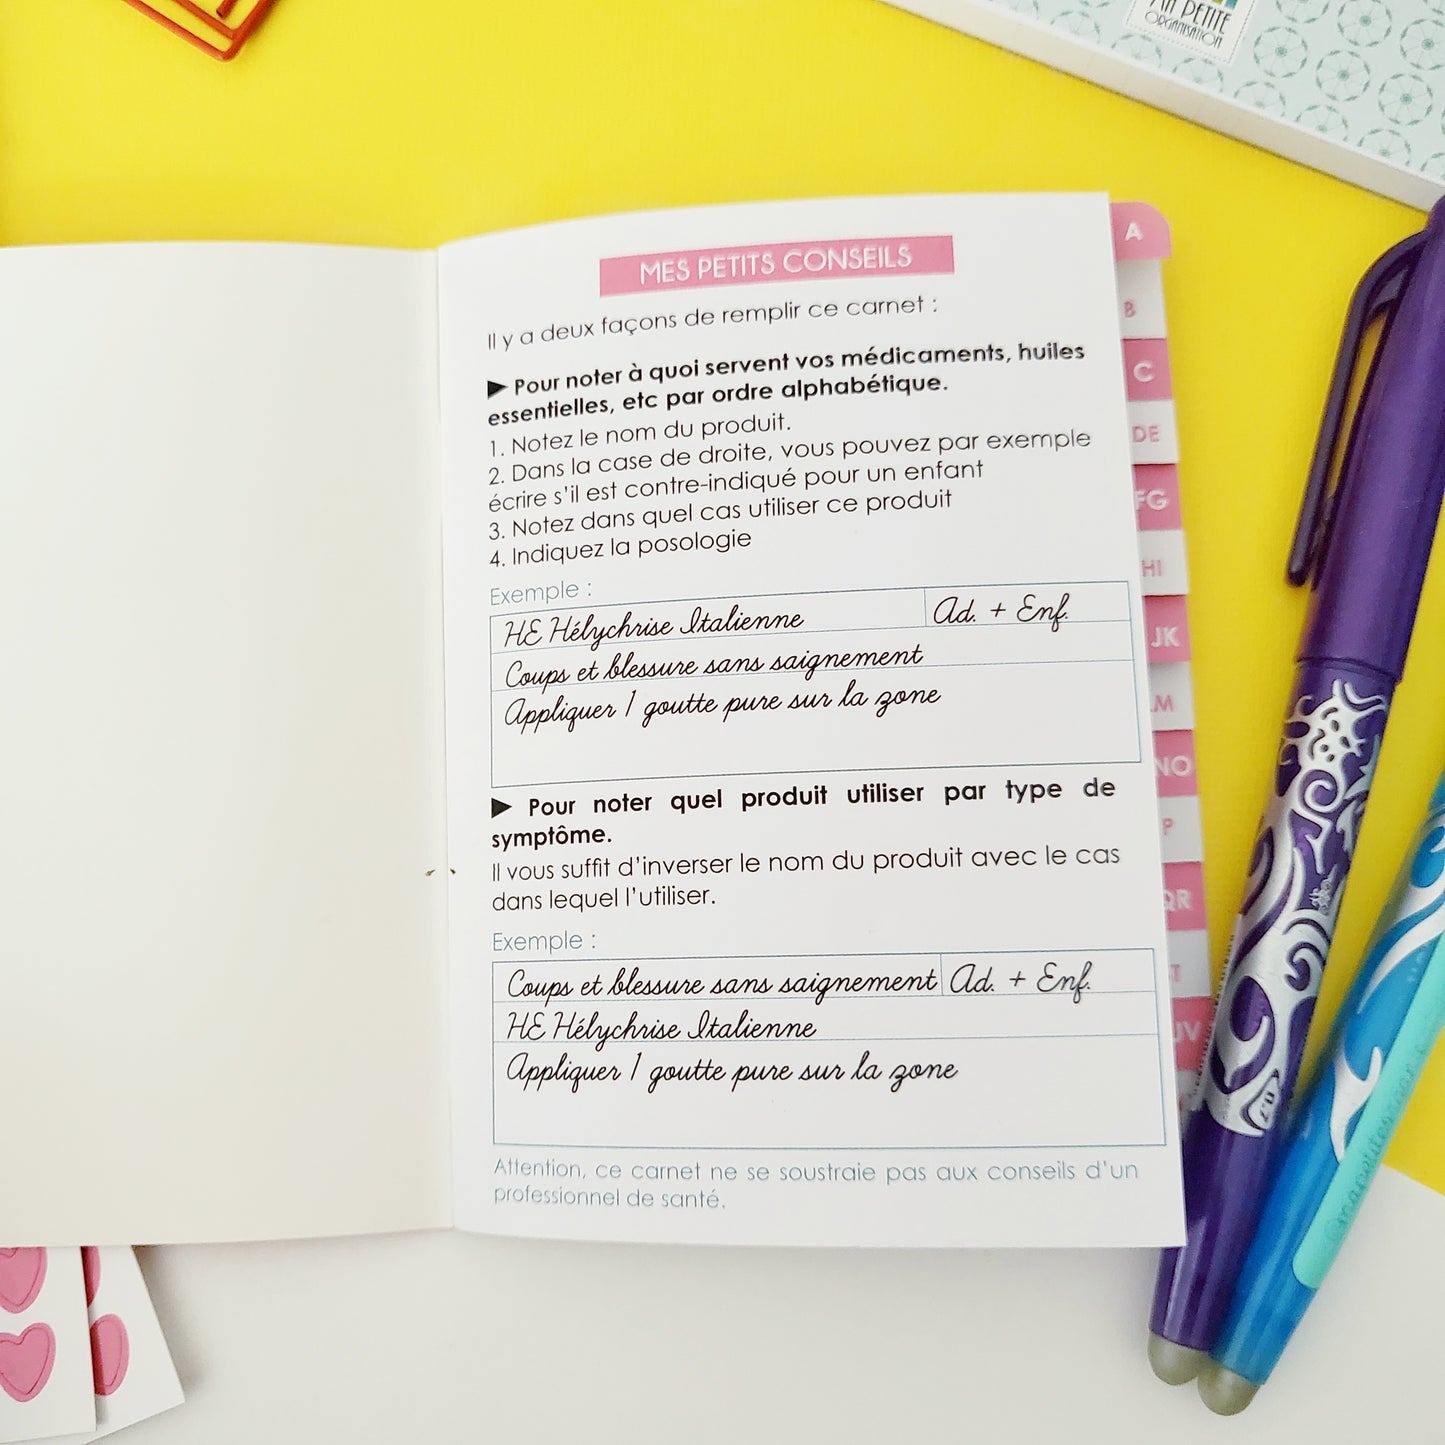 PETITE
ORGANISATION
MES PETITS CONSEILS
Il y a deux façons de remplir ce carnet :
▶ Pour noter à quoi servent vos médicaments, huiles
essentielles, etc par ordre alphabétique.
1. Notez le nom du produit.
2. Dans la case de droite, vous pouvez par exemple
écrire s'il est contre-indiqué pour un enfant
3. Notez dans quel cas utiliser ce produit
4. Indiquez la posologie
Exemple :
HE Hélychrise Italienne Ad. + Enf.
Coups et blessure sans saignement
Appliquer 1 goutte pure sur la zone
▶ Pour noter quel produit utiliser par type de
symptôme.
Il vous suffit d'inverser le nom du produit avec le cas
dans lequel l'utiliser.
Exemple :
Coups et blessure sans saignement Ad. + Enf.
HE Hélychrise Italienne
Appliquer 1 goutte pure sur la zone
Attention, ce carnet ne se soustraie pas aux conseils d'un
professionnel de santé.
A
B
C
DE
FG
HI
JK
M
NO
P
QR
T
UV
0.7